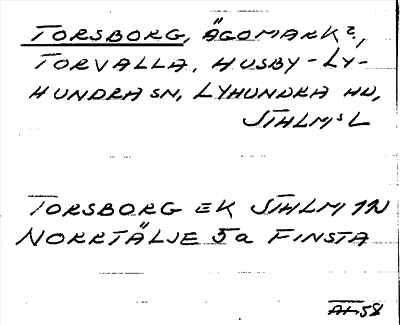 TORSBORG, ÄGOMARK?,
TORVALLA, HUSBY-LY-
HUNDRA SN, LYHUNDRA HD,
STHLMS L
TORSBORG EK STHLM 1N
NORRTÄLJE 5a FINSTA
AL58